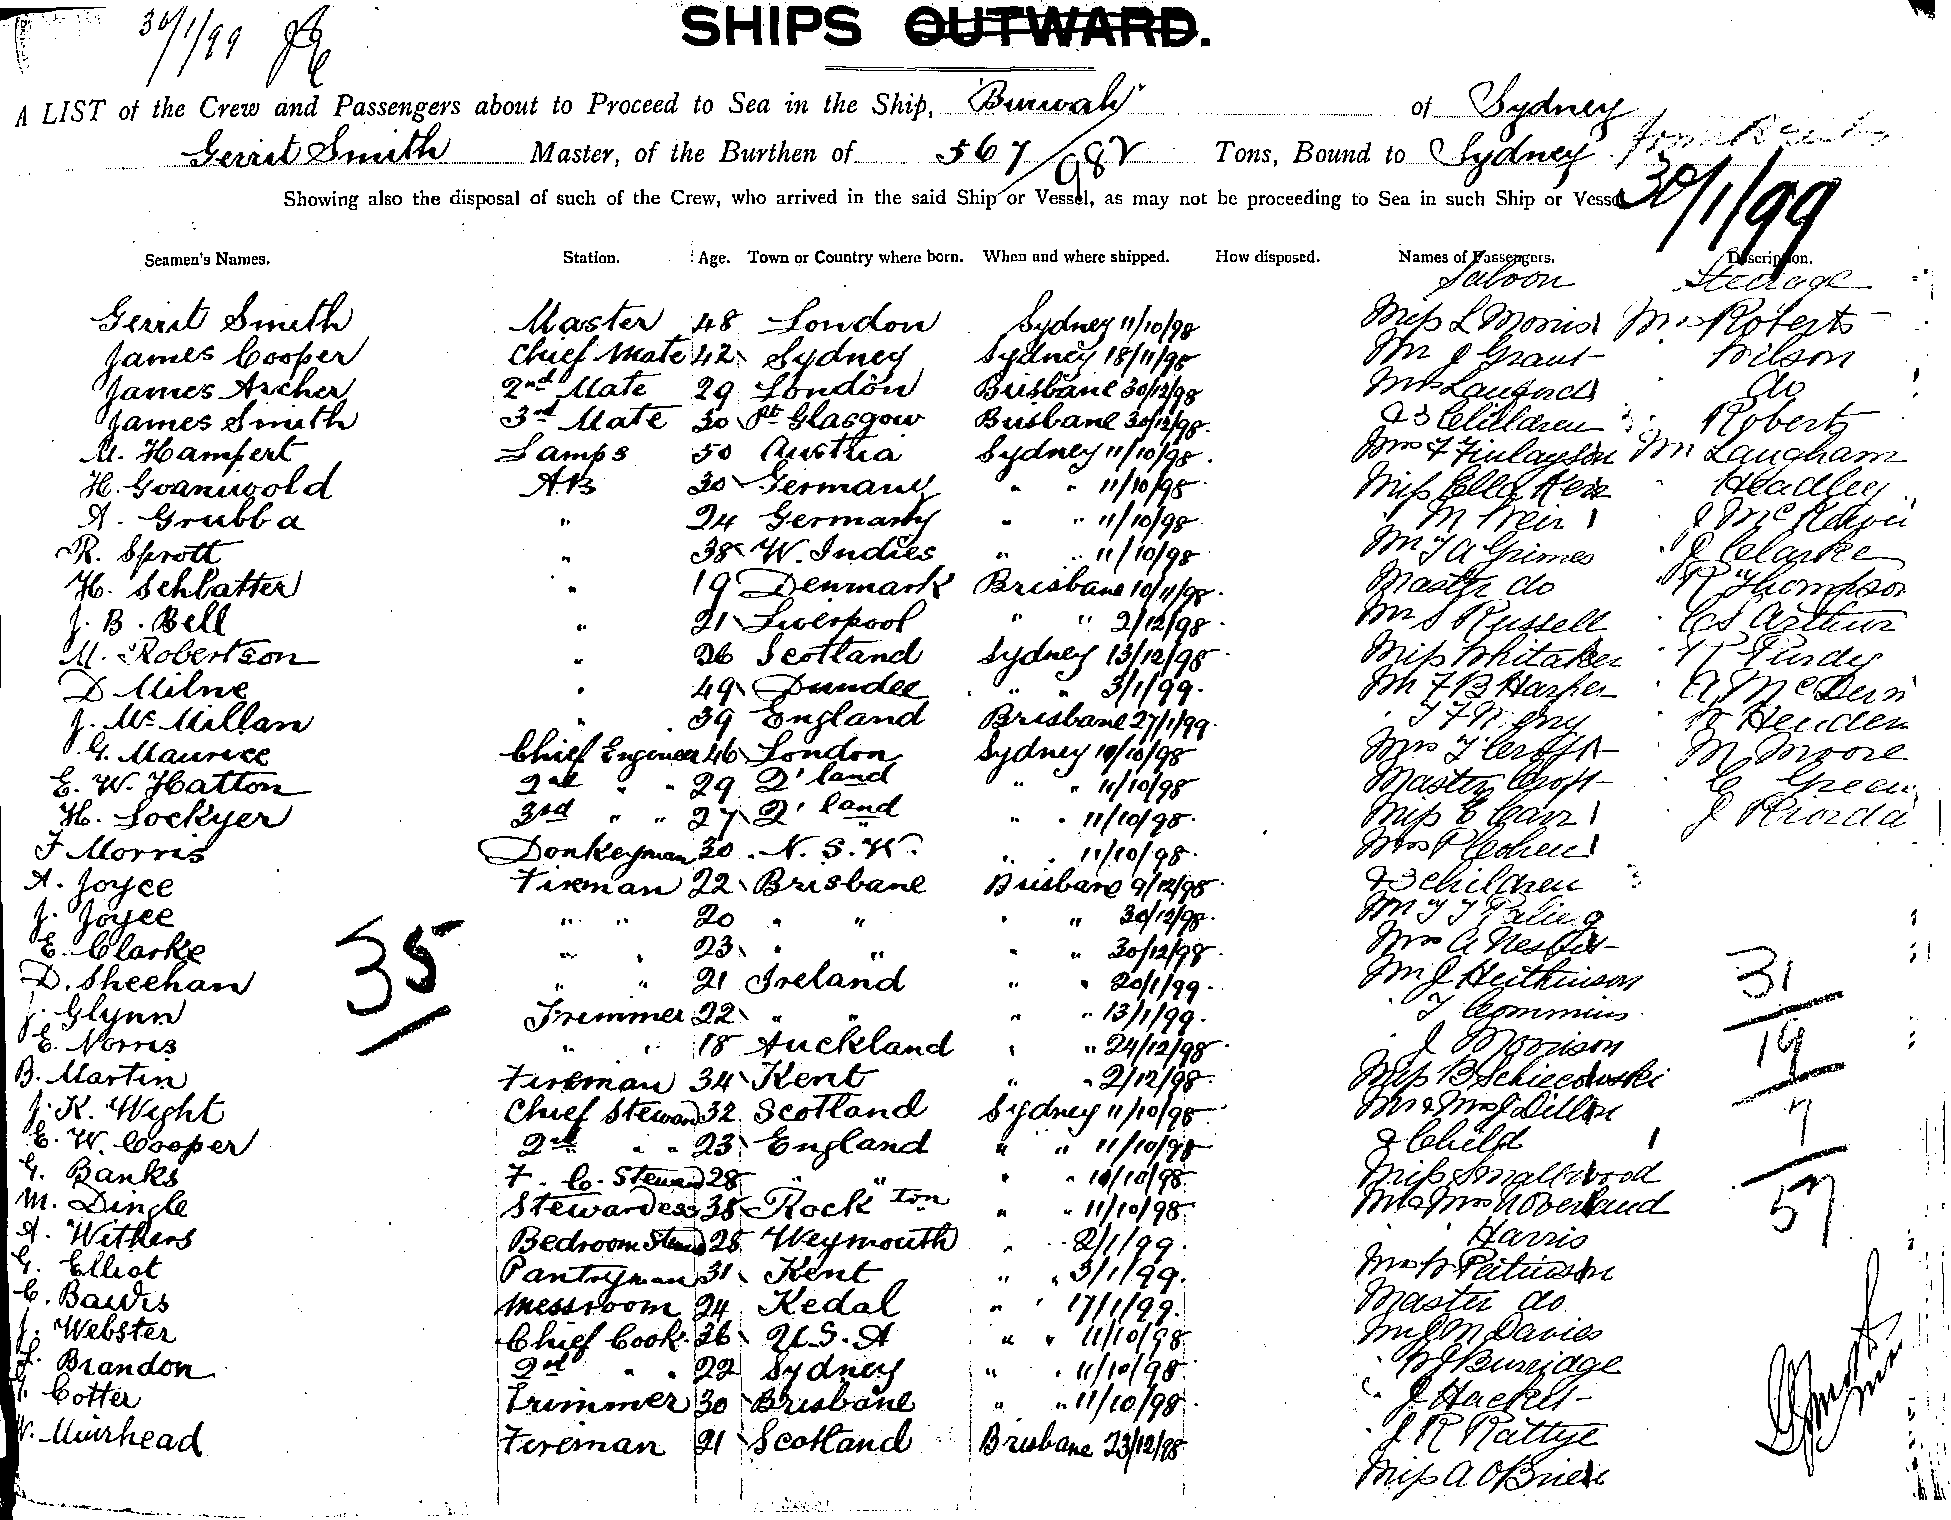 30/1/99
SHIPS OUTWARD.
A LIST of the Crew and Passengers about to Proceed to Sea in the Ship, "Burwah" of Sydney
Gerrit Smith Master, of the Burthen of 567/982 Tons, Bound to Sydney
30/1/99
Showing also the disposal of such of the Crew, who arrived in the said Ship or Vessel, as may not be proceeding to Sea in such Ship or Vessel
Seamen's Names. Station. Age. Town or Country where born. When and where shipped. How disposed. Names of Passengers. Description.
Saloon Steerage
Gerrit Smith Master 48 London Sydney 11/10/98 Miss L Morris Mrs Roberts
James Cooper Chief Mate 42 Sydney Sydney 18/11/98 Mr J Grant Wilson
James Archer 2nd Mate 29 London Brisbane 30/12/98 Mrs do
James Smith 3rd Mate 30 Pt Glasgow Brisbane 30/12/98 & 3 Children Roberts
M. Hampert Lamps 50 Austria Sydney 11/10/98 Mrs F Finlayson Mr Laugham
H. Goaniwold AB 30 Germany " " 11/10/98 Miss Ella Headley
A. Grubba " 24 Germany " " 11/10/98 M Weir J
R. Sprott " 38 W. Indies " " 11/10/98 Mr T A Grimes J Clarke
H. Schlatter " 19 Denmark Brisbane 10/11/98 Master do R Thompson
J. B. Bell " 21 Liverpool " " 2/12/98 Mr S Russell C S Arthur
M. Robertson " 26 Scotland Sydney 13/12/98 Miss Whitaker R Purdy
D Milne " 49 Dundee " " 3/1/99 Mr F B Harper A
J. McMillan " 39 England Brisbane 27/1/99
G. Maurice Chief Engineer 46 London Sydney 10/10/98 Mrs T Croft M Moore
E. W. Hatton 2nd " " 29 Q'land " " 11/10/98 Master Croft C Green
H. Lockyer 3rd " " 27 Q'land " " 11/10/98 Miss E Carr J Riorda
F Morris Donkeyman 30 N. S. W. " " 11/10/98 Mrs P Cohen
A. Joyce Fireman 22 Brisbane Brisbane 9/12/98 & 3 children
J. Joyce " " 20 " " " " 30/12/98 Mr T J Paling
E. Clarke " " 23 " " " " 30/12/98 Mrs A Nesbit
D. Sheehan " " 21 Ireland " " 20/1/99 Mr J Hutchinson
35
31
J. Glynn Trimmer 22 " " " " 13/1/99 T Commins
E. Norris " " 18 Auckland " " 24/12/98 J Morrison
19
B. Martin Fireman 34 Kent " " 2/12/98 Miss B
J. K. Wight Chief Steward 32 Scotland Sydney 11/10/98 Mr & Mrs J Dillon
7
E. W. Cooper 2nd " " 23 England " " 11/10/98 & Child
G. Banks F. C. Steward 28 " " " 10/10/98 Miss Smallwood
M. Dingle Stewardess 38 Rock'ton " " 11/10/98 Mr & Mrs N Overland
57
A. Withers Bedroom Steward 28 Weymouth " " 2/1/99 Harris
G. Elliot Pantryman 31 Kent " " 3/1/99 Mrs
C. Bawis Messroom 24 Kedal " " 17/1/99 Master do
J. Webster Chief Cook 26 U.S.A " " 11/10/98 Mr J M Davies
Brandon 2nd " " 22 Sydney " " 11/10/98 Burridge
Cotter Trimmer 30 Brisbane " " 11/10/98 J Hackett
W. Muirhead Fireman 21 Scotland Brisbane 23/12/98 J R Rattye
Miss A O'Brien